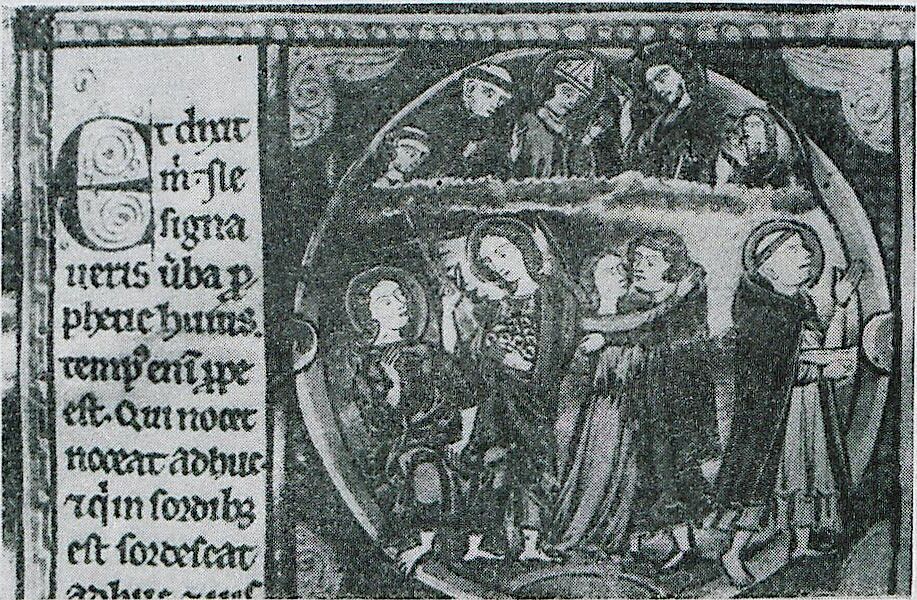 Et dixit
m̄. Ne
signa
ueris ūba ꝓ
phetie huius.
tempꝰ enī ꝓpe
est. Qui nocet
noceat adhuc.
⁊ qͥ in sordibꝫ
est sordescat
adhuc